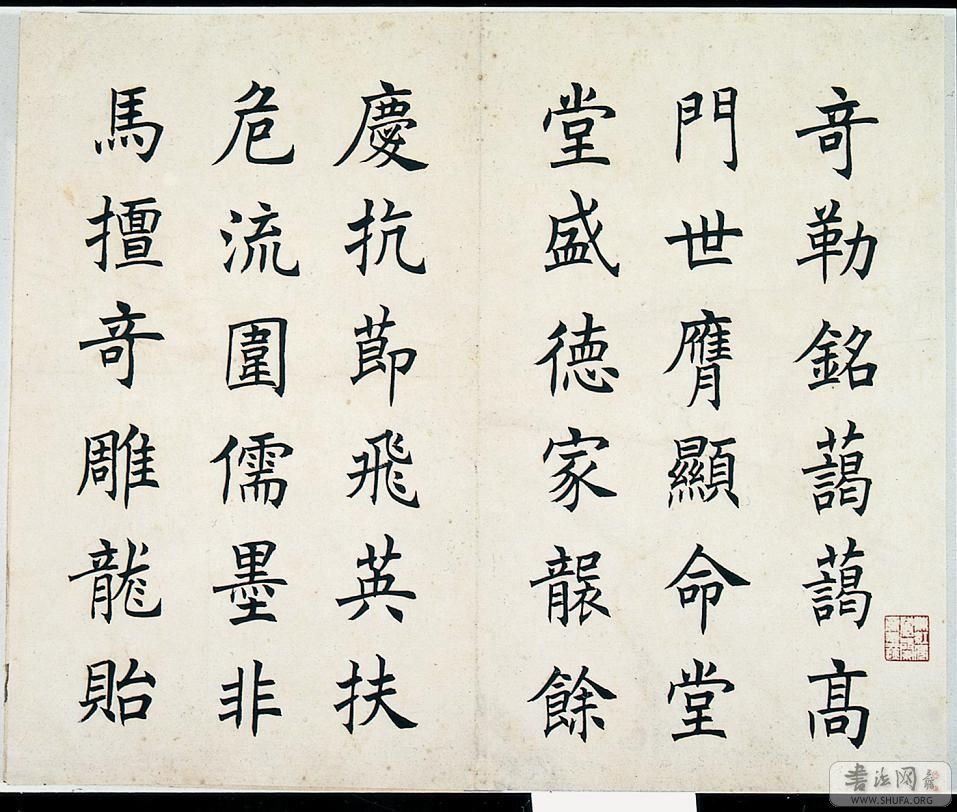 奇勒銘藹藹高
門世膺顯命堂
堂盛德家襲餘
慶抗節飛英扶
危流圍儒墨非
馬擅奇雕龍貽
書法网
WWW.SHUFA.ORG